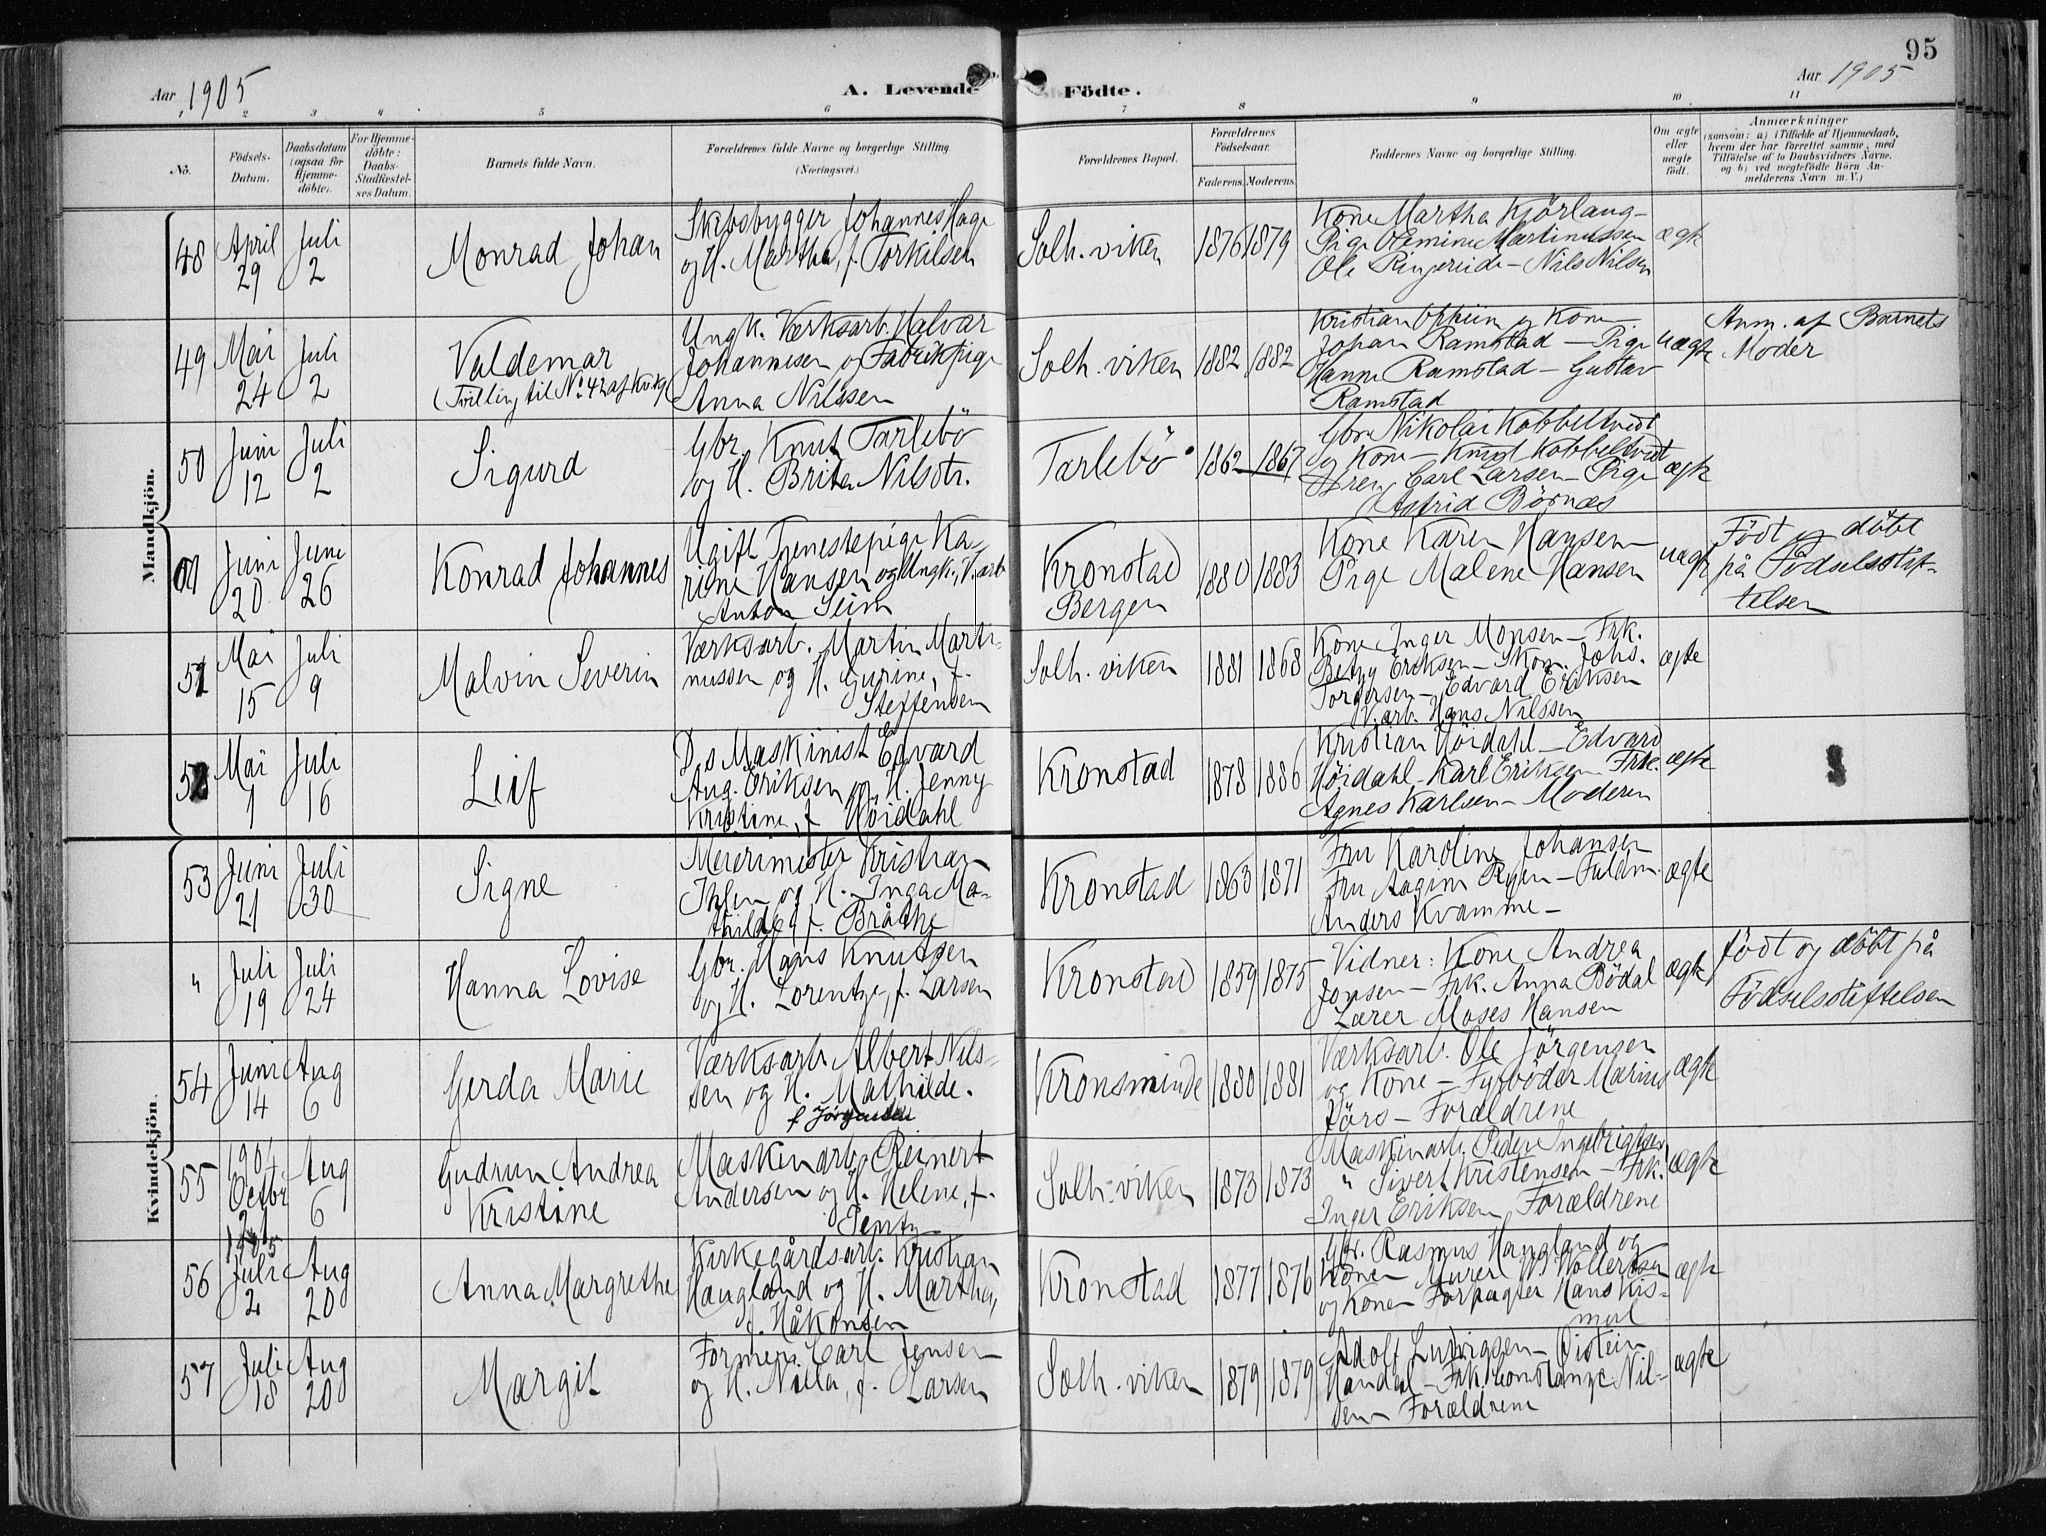 95
Aar 1905
A. Levende Födte.
Aar 1905
1 2 3 4 5 6 7 8 9 10 11
No.
Födsels-Datum.
Daabsdatum (ogsaa for Hjemme-döbte).
For Hjemme-döbte: Daabs-Stadfæstel-ses Datum.
Barnets fulde Navn.
Forældrenes fulde Navne og borgerlige Stilling. (Næringsvei.)
Forældrenes Bopæl.
Forældrenes Födselsaar.
Faderens. Moderens.
Faddernes Navne og borgerlige Stilling.
Om ægte eller uægte födt.
Anmærkninger
(saasom: a) i Tilfælde af Hjemmedaab, hvem der har forrettet samme, med Tilföielse af to Daabsvidners Navne, og b) ved uægtefödte Börn An-melderens Navn m. V.)
Mandkjön.
48 April 29 Juli 2 Monrad Johan
Skibsbygger Johannes Hage
og H. Martha, f. Torkilsen
Solh. viken 1876 1879
Kone Martha Kjörlaug-
Pige Olemine Martinussen
Ole Ringereide - Nils Nilsen
ægte
49 Mai 24 Juli 2 Valdemar
(Tvilling til No. 42 af Kvkj.)
Ungk. Værksarb. Halvar
Johannesen og Fabrikpige
Anna Nilssen
Solh. viken 1882 1882
Kristian Opheim og Kone
Johan Ramstad - Pige
Hanna Ramstad - Gustav
Ramstad
uægte
Anm. af Barnets
Moder
50 Juni 12 Juli 2 Sigurd
Gbr. Knut Tarlebö
og H. Brita Nilsdtr.
Tarlebö 1862 1867
Gbr. Nikolai Kobbeltvedt
og Kone - Knut Kobbeltvedt
Dreng Carl Larsen - Pige
Astrid Börnæs
ægte
Juni 20 Juni 26 Konrad Johannes
Ugift Tjenestepige Ka-
rine Hansen og Ungk. V. arb
Anton Seim
Kronstad
Bergen
1880 1883
Kone Karen Hansen
Pige Malene Hansen
uægte
Födt og döbt
på Födselsstif-
telsen
51 Mai 15 Juli 9 Malvin Severin
Værksarb. Martin Marti-
nussen og H. Gurine, f.
Steffensen
Solh. viken 1881 1868
Kone Inger Monsen - Frk.
Betzy Eriksen - Skom. Johs.
Torgersen - Edvard Eriksen
V. arb. Hans Nilssen
ægte
52 Mai 1 Juli 16 Leif
D.s Maskinist Edvard
Aug. Eriksen og H. Jenny
Kristine, f. Höidahl
Kronstad 1878 1886
Kristian Höidahl - Edvard
Höidahl - Karl Eriksen Frk.
Agnes Karlsen - Moderen
ægte
Kvindekjön.
53 Juni 21 Juli 30 Signe
Meierimester Kristian
Ihlen og H. Inga Ma-
thilde, f. Bråthe
Kronstad 1863 1871
Fru Karoline Johansen
Fru - Fuldm.
Anders Kvamme -
ægte
" Juli 19 Juli 24 Hanna Lovise
Gbr. Hans Knutsen
og H. Lorentze, f. Larsen
Kronstad 1859 1875
Vidner: Kone Andrea
Jonsen - Frk. Anna Bödal
Lærer Moses Hansen
ægte
födt og döbt på
Födselsstiftelsen
54 Juni 14 Aug 6 Gerda Marie
Værksarb. Albert Nils-
sen og H. Mathilde.
f Jörgensen
Kronsminde 1880 1881
Værksarb. Ole Jörgensen
og Kone - Fyrböder Marius
Förs - Forældrene
ægte
55 1904 Octbr 21 Aug 6 Gudrun Andrea
Kristine
Maskinarb. Reinert
Andersen og H. Helene, f.
Pentz
Solh. viken 1873 1873
Maskinarb. Peder Ingebrigtsen
" Sivert Kristensen - Frk.
Inger Eriksen, Forældrene
ægte
56 1905 Juli 2 Aug 20 Anna Margrethe
Kirkegårdsarb. Kristian
Haugland og H. Martha,
f. Håkonsen
Kronstad 1877 1876
Gbr. Rasmus Haugland og
Kone - Murer Hollertsen
og Kone Forpagter Hans Kis-
mul
ægte
57 Juli 18 Aug 20 Margit
Former Carl Jensen
og H. Nilla, f. Larsen
Solh. viken 1879 1879
Adolf Ludvigsen - Öistein
Handal - Frk Constanze Nil-
sen - Forældrene
ægte